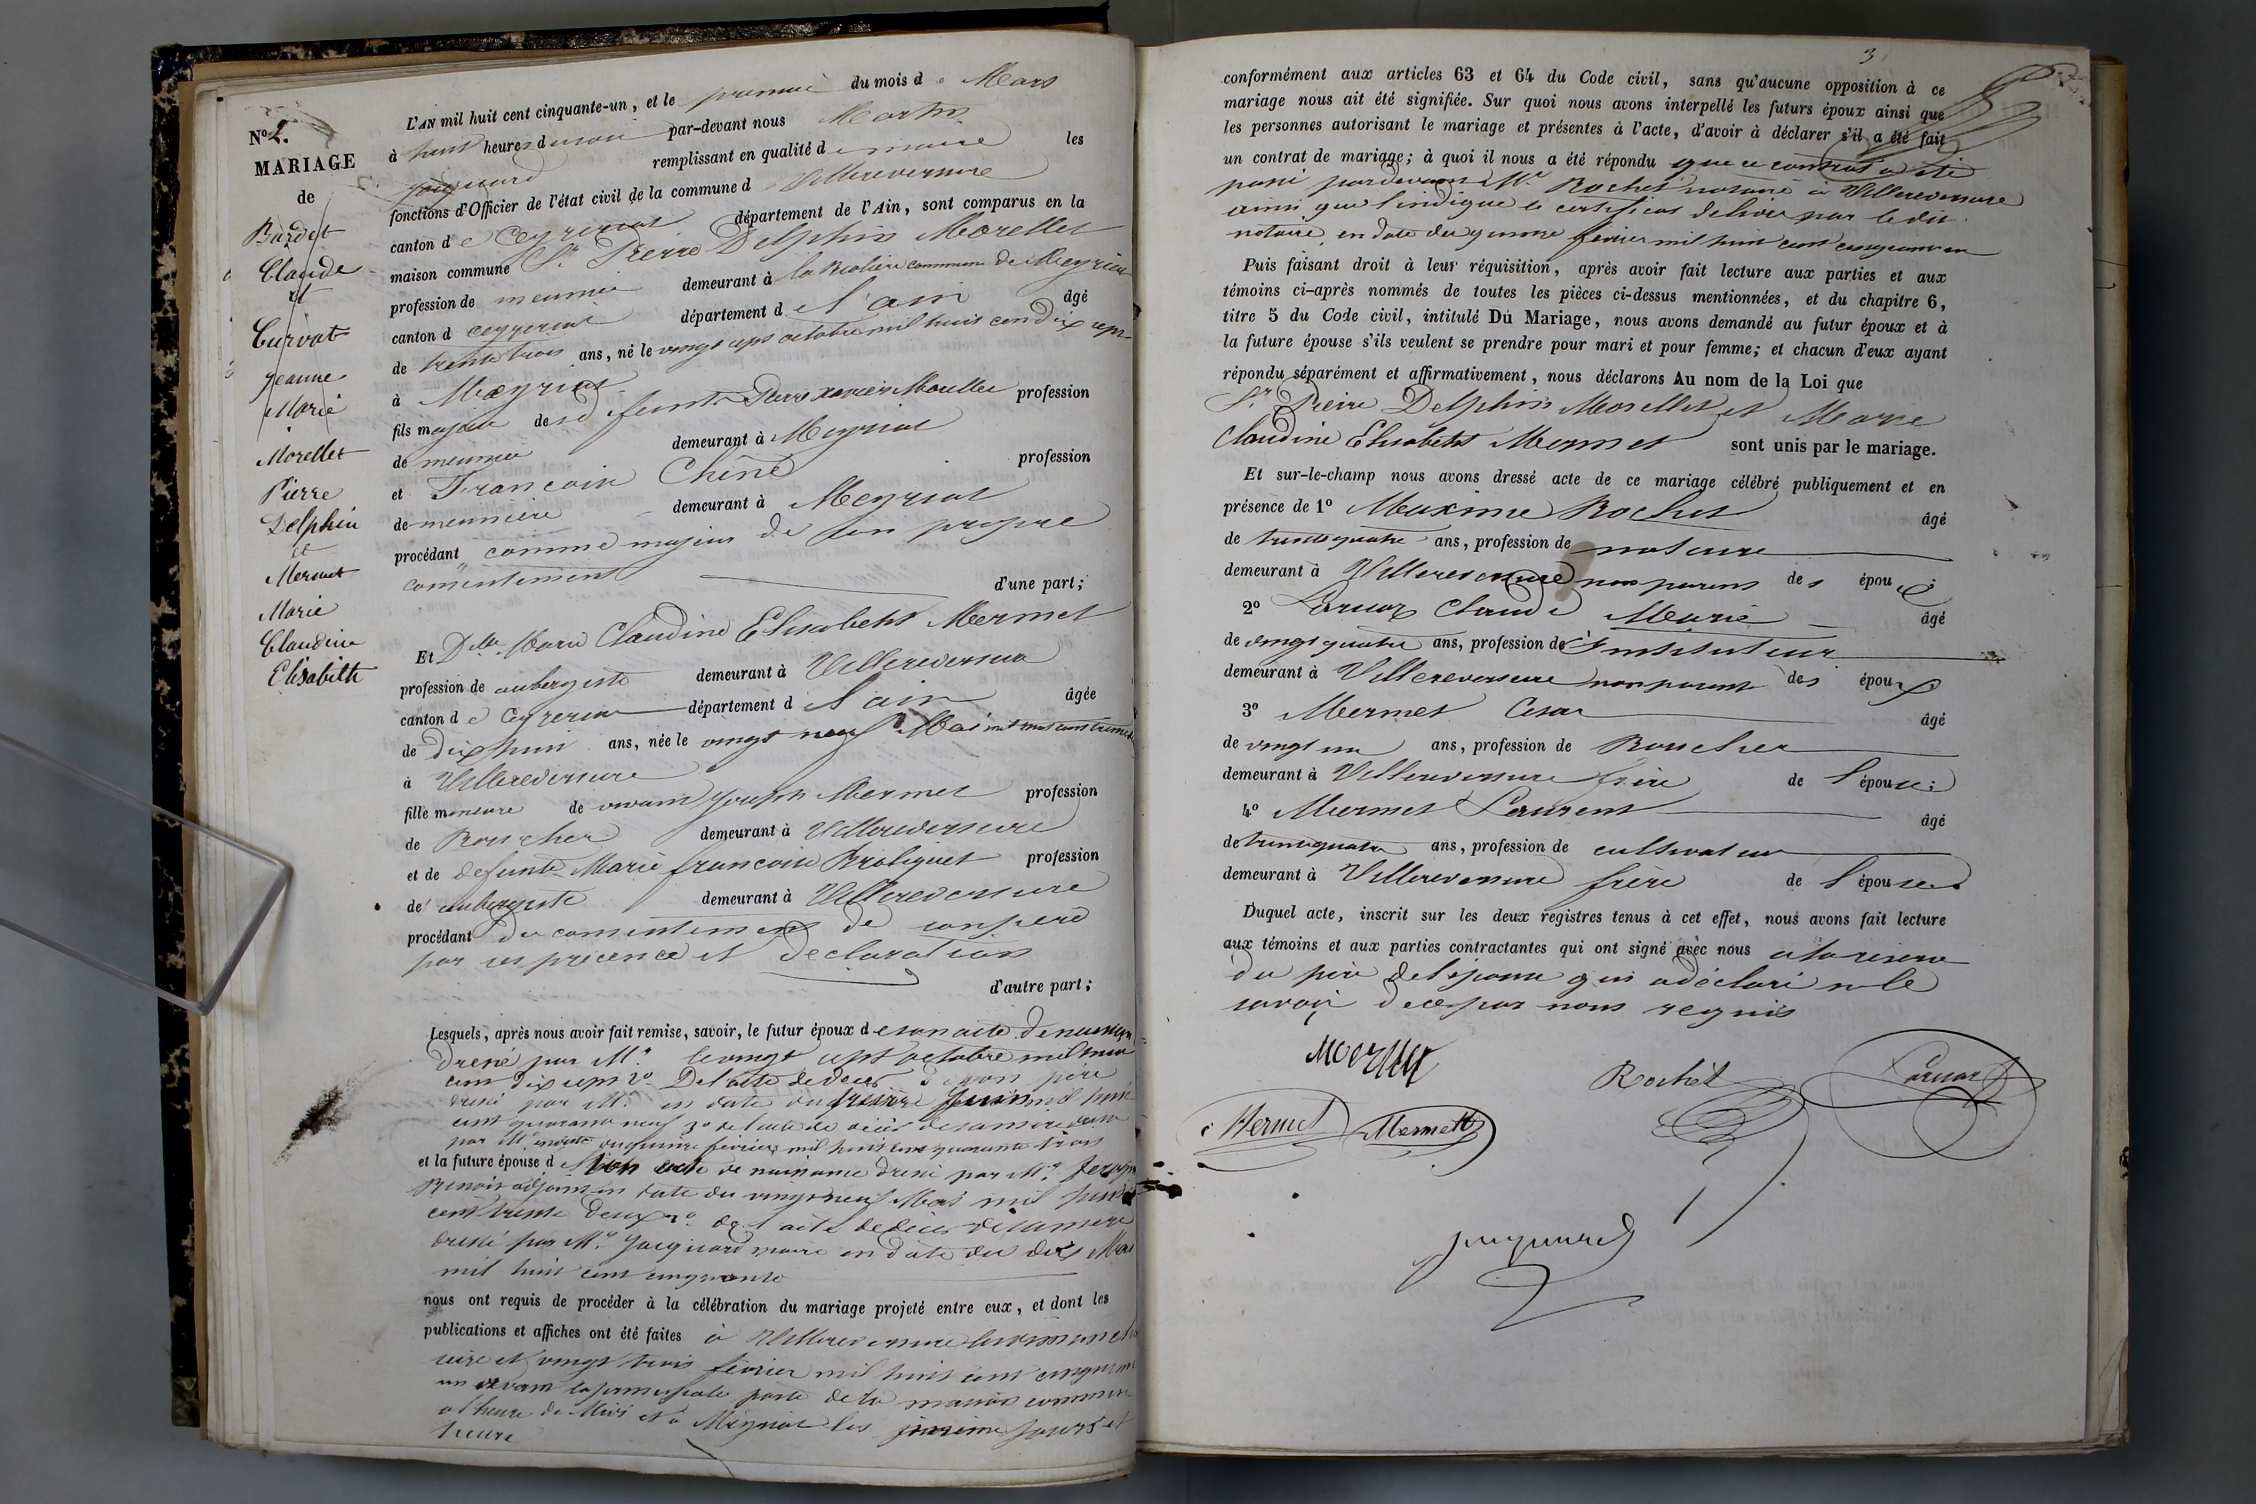 N° 2.
MARIAGE
de
Bardet
Claude
et
Curvat
Jeanne
Marie
Morellet
Pierre
Delphin
et
Mermet
Marie
Claudine
Elisabeth
L'AN mil huit cent cinquante-un, et le premier du mois de Mars
à huit heures du soir par-devant nous Martin
Jacquard remplissant en qualité de maire les
fonctions d'Officier de l'état civil de la commune d Villereversure
canton de Ceyzeriat département de l'Ain, sont comparus en la
maison commune Sr Pierre Delphin Morellet
profession de meunier demeurant à la commune de Meyriat
canton d ceyzeriat département d l'ain âgé
de trente trois ans, né le vingt sept octobre mil huit cent dix sept
à Meyriat
fils majeur de feu Pierre xavier Morellet profession
de meunier demeurant à Meyriat
et Françoise Chêne profession
de meunière demeurant à Meyriat
procédant comme majeur de son propre
consentement d'une part;
Et Dlle Marie Claudine Elisabeth Mermet
profession de aubergiste demeurant à Villereversure
canton de Ceyzeriat département d l'ain âgée
de dix huit ans, née le vingt neuf Mai mil huit cent trente deux
à Villereversure
fille mineure de vivant Joseph Mermet profession
de Boucher demeurant à Villereversure
et de defunte Marie françoise Broliquet profession
de aubergiste demeurant à Villereversure
procédant du consentement de son père
par ses présence et déclaration
d'autre part;
Lesquels, après nous avoir fait remise, savoir, le futur époux de son acte de naissance
dressé par Mr le vingt sept octobre mil huit
cent dix sept 2° De l'acte de décès de son père
dressé par Mr en date du treize Juin mil huit
cent quarante neuf 3° de l'acte de décès de sa mère dressé
par Mr en date du quinze février mil huit cent quarante trois
et la future épouse d son acte de naissance dressé par Mr
Benoit adjoint en date du vingt neuf Mai mil huit
cent trente deux 2° de l'acte de décès de sa mère
dressé par Mr Jacquard maire en date du dix Mars
mil huit cent cinquante
nous ont requis de procéder à la célébration du mariage projeté entre eux, et dont les
publications et affiches ont été faites à Villereversure les dimanches
seize et vingt trois février mil huit cent cinquante
un devant la principale porte de la maison commune
a l'heure de Midi et à Meyriat les mêmes jours et
heure
3
conformément aux articles 63 et 64 du Code civil, sans qu'aucune opposition à ce
mariage nous ait été signifiée. Sur quoi nous avons interpellé les futurs époux ainsi que
les personnes autorisant le mariage et présentes à l'acte, d'avoir à déclarer s'il a été fait
un contrat de mariage; à quoi il nous a été répondu que ce contrat a été
passé pardevant Mr Rochet notaire à Villereversure
ainsi que l'indique le certificat délivré par le dit
notaire, en date du quinze février mil huit cent cinquante un
Puis faisant droit à leur réquisition, après avoir fait lecture aux parties et aux
témoins ci-après nommés de toutes les pièces ci-dessus mentionnées, et du chapitre 6,
titre 5 du Code civil, intitulé Du Mariage, nous avons demandé au futur époux et à
la future épouse s'ils veulent se prendre pour mari et pour femme; et chacun d'eux ayant
répondu séparément et affirmativement, nous déclarons Au nom de la Loi que
Sr Pierre Delphin Morellet et Marie
Claudine Elisabeth Mermet sont unis par le mariage.
Et sur-le-champ nous avons dressé acte de ce mariage célébré publiquement et en
présence de 1° Maxime Rochet âgé
de trente quatre ans, profession de notaire
demeurant à Villereversure non parent des époux
2° Larnoz Claude Marie âgé
de vingt quatre ans, profession de Instituteur
demeurant à Villereversure non parent des époux
3° Mermet Cesar âgé
de vingt un ans, profession de Boucher
demeurant à Villereversure frère de l'épouse;
4° Mermet Laurent âgé
de trente quatre ans, profession de cultivateur
demeurant à Villereversure frère de l'épouse
Duquel acte, inscrit sur les deux registres tenus à cet effet, nous avons fait lecture
aux témoins et aux parties contractantes qui ont signé avec nous a la réserve
du père de l'épouse qui a déclaré ne le
savoir de ce par nous requis
Mermet
Rochet
Larnoz
Mermet
Mermet
Jacquard